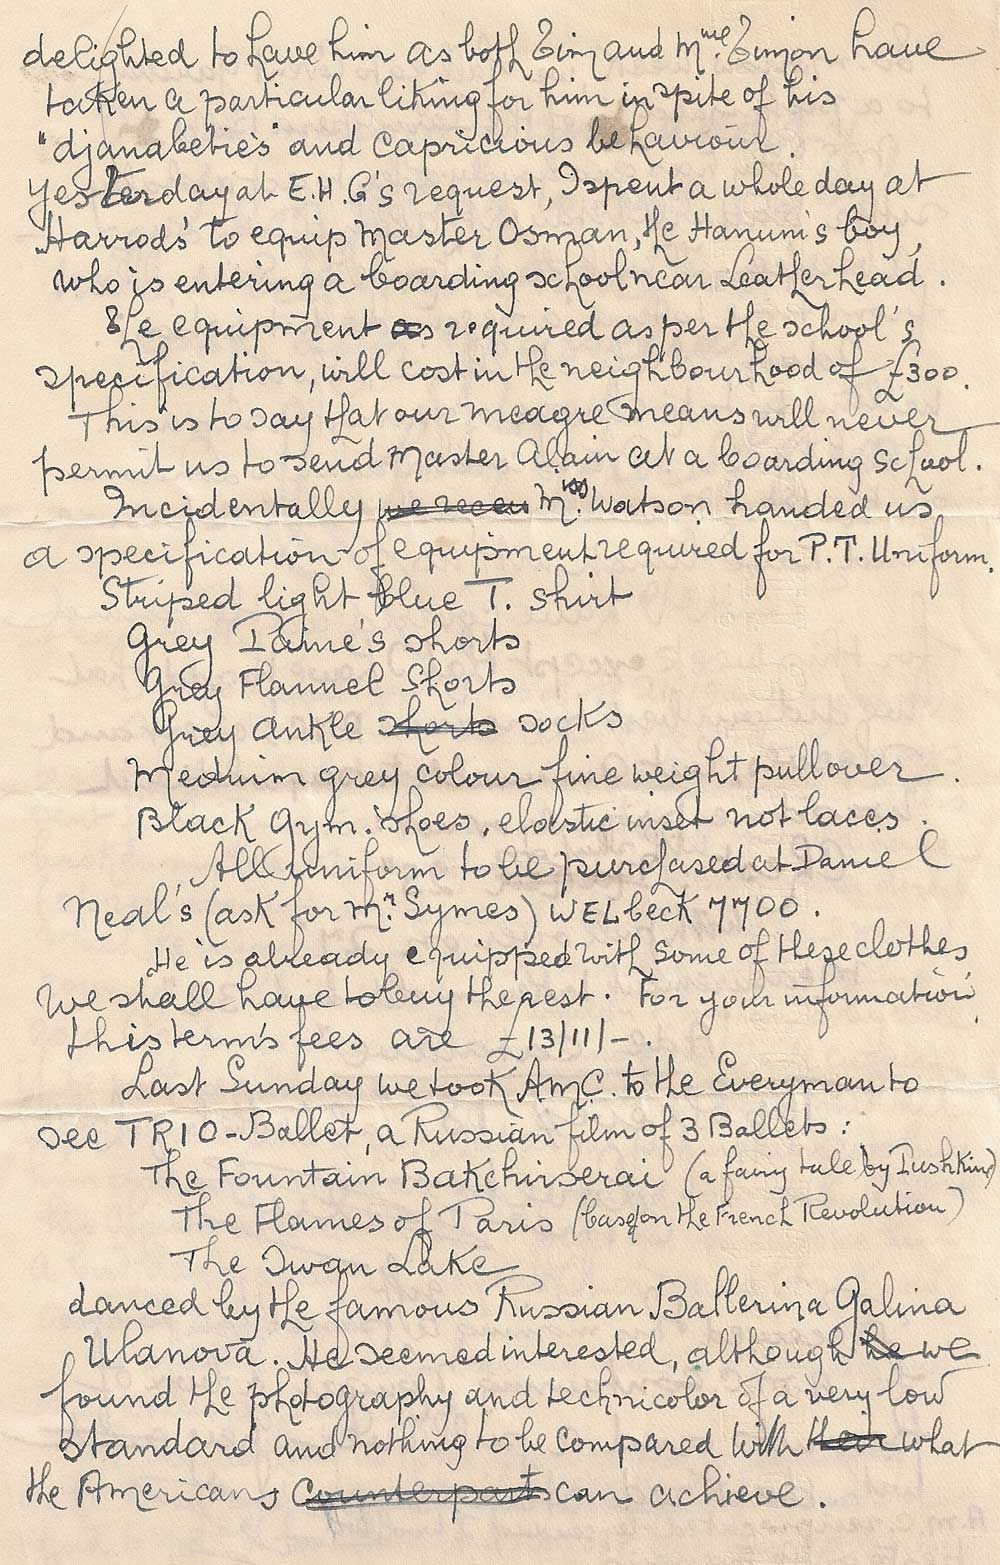 delighted to have him as both Zim and Mme. Zimon have
taken a particular liking for him in spite of his
"djanabetie's" and capricious behaviour.
Yesterday at E.H.G's request, I spent a whole day at
Harrods' to equip Master Osman, the Hanum's boy,
who is entering a boarding school near Leatherhead.
The equipment as required as per the school's
specification, will cost in the neighbourhood of £300.
This is to say that our meagre means will never
permit us to send Master Alain at a boarding school.
Incidentally we recev Mrs. Watson handed us
a specification of equipment required for P.T. Uniform.
Striped light blue T. Shirt
Grey Paine's shorts
Grey Flannel Shorts
Grey ankle shorts socks
Meduim grey colour fine weight pullover.
Black Gym. shoes, elastic inset not laces.
All uniform to be purchased at Daniel
Neal's (ask for Mr. Symes) WELbeck 7700.
He is already equipped with some of these clothes
We shall have to buy the rest. For your information
this term's fees are £13/11/-.
Last Sunday we took A.M.C. to the Everyman to
see TRIO-Ballet, a Russian film of 3 Ballets:
The Fountain Bakchirserai (a fairy tale by Pushkin)
The Flames of Paris (based on the French Revolution)
The Swan Lake
danced by the famous Russian Ballerina Galina
Ulanova. He seemed interested, although he we
found the photography and technicolor of a very low
standard and nothing to be compared with their what
the Americans Counterparts can achieve.